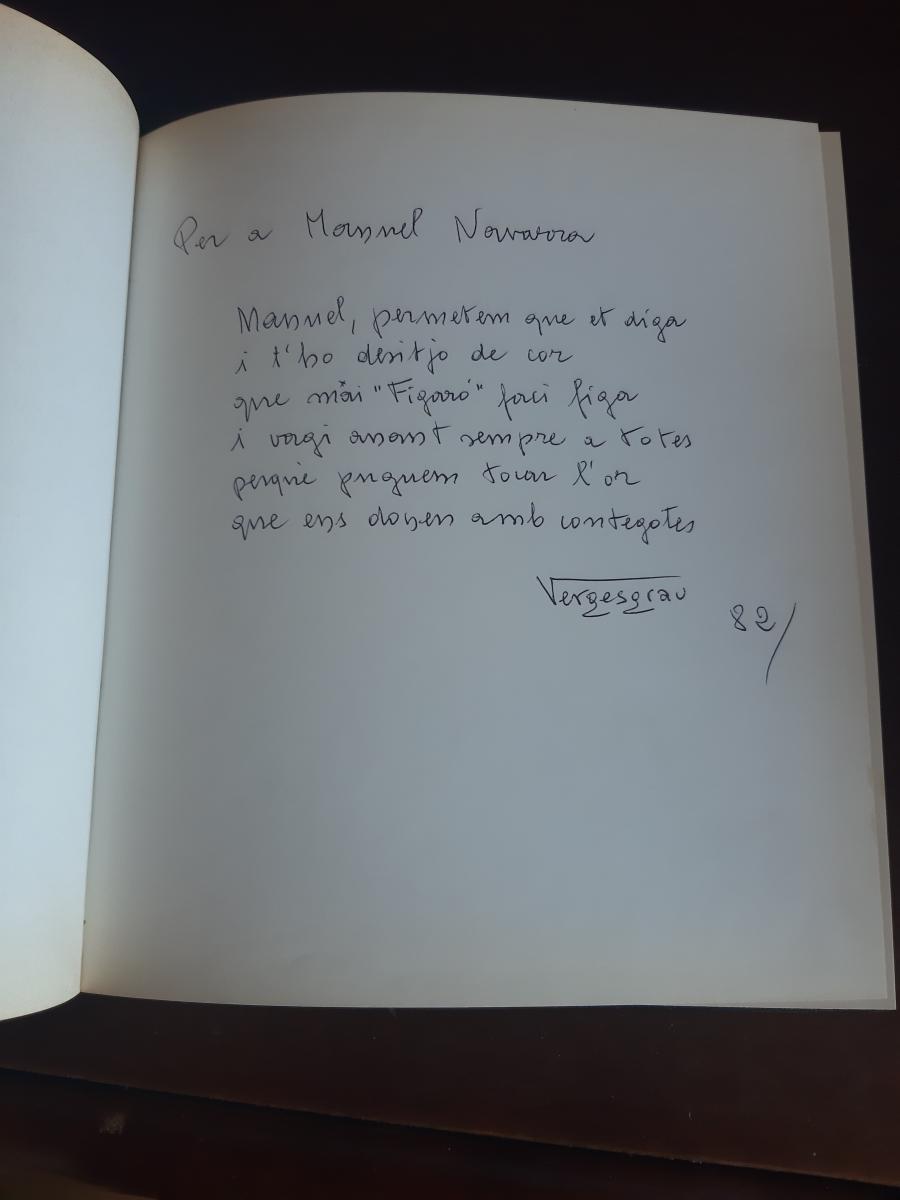 Per a Manuel Navarra
Manuel, permetem que et diga
i t'ho desitjo de cor
que mäi "Figaró" faci figa
i vagi anant sempre a totes
perquè puguem tocar l'or
que ens donen amb contegotes
Vergesgrau
82/